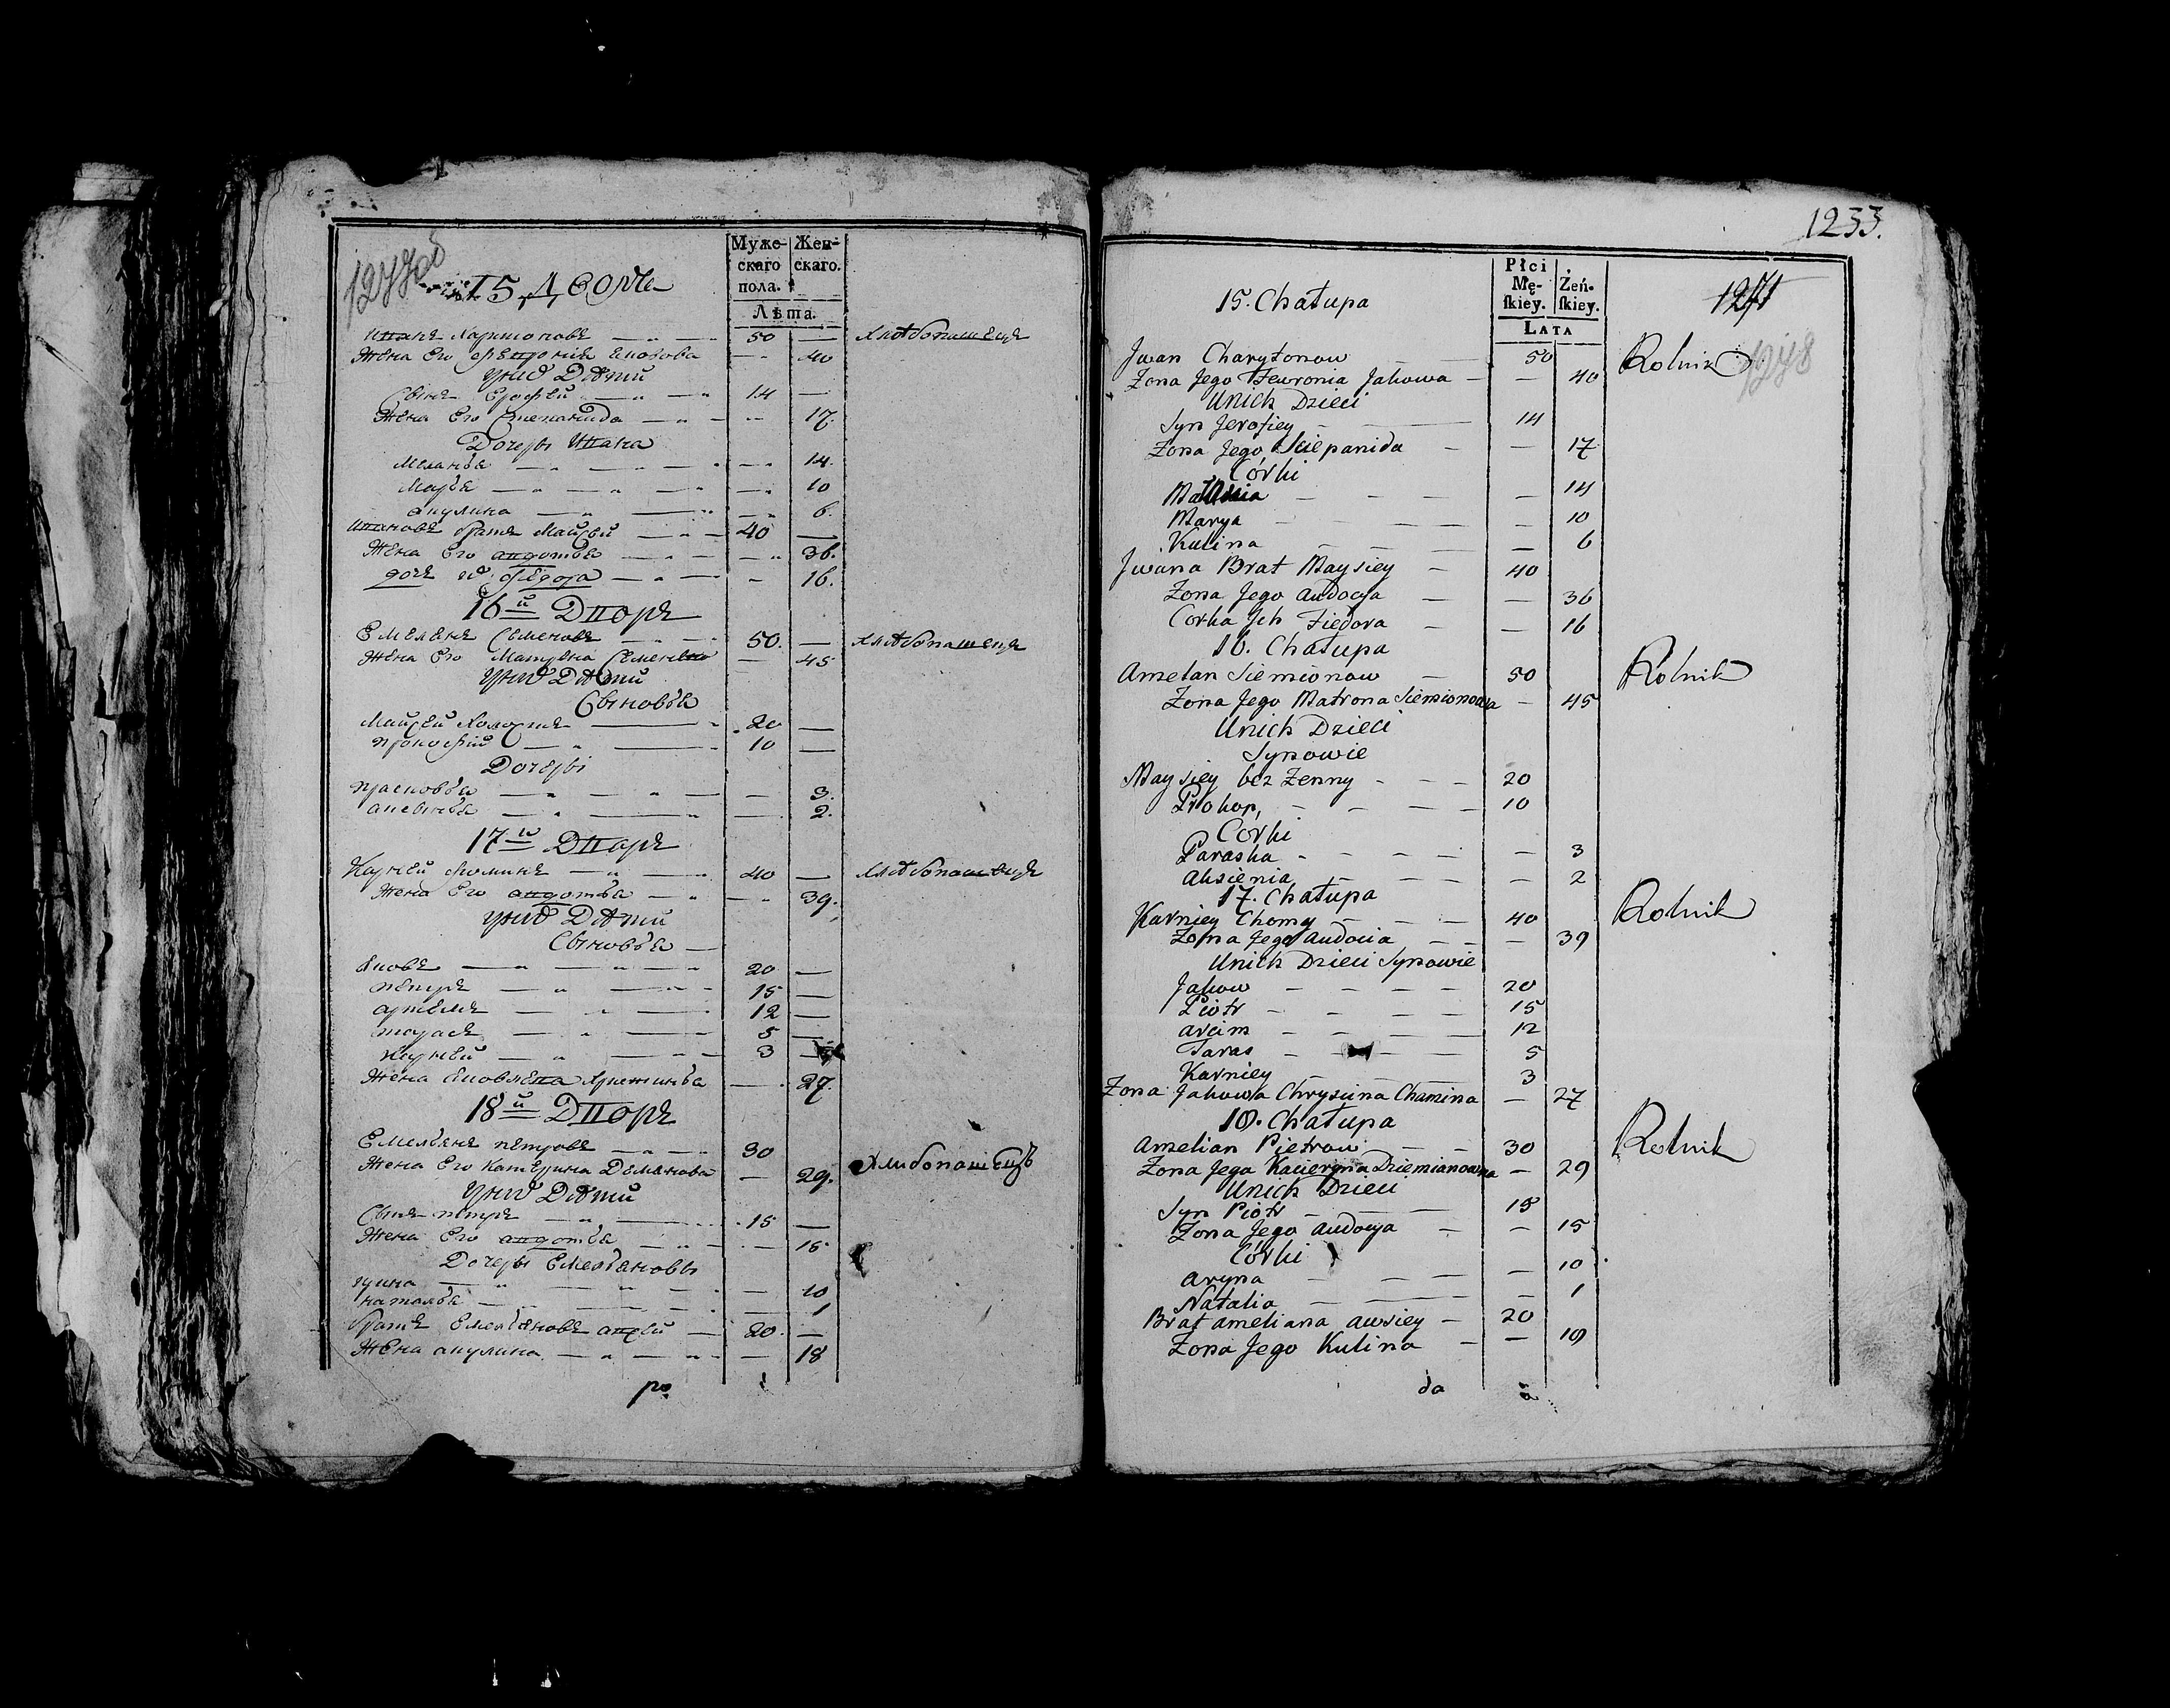 1277об
Муже-
скаго
пола.
Жен-
скаго.
Лѣта.
15 Дворъ
Иванъ Харитоновъ — 50 — Хлѣбопашецъ
Жена Его Февронія Яковова — 40
У них Дѣти
Сынъ Ерофей — 14 —
Жена Его Степанида — 17.
Дочеры Ивана
Меланья — 14.
Марья — 10
акулина — 6.
Ивановъ братъ Майсей — 40 —
Жена Его авдотья — 36.
дочь их Федора — 16.
16й Дворъ
Емелянъ Семеновъ — 50. — хлѣбопашецъ
Жена Его Матрена Семенова — 45
У них Дѣти
Сыновья
Майсей Холостъ — 20 —
Прокофий — 10 —
Дочеры
Прасковья — 3.
аксинья — 2.
17й Дворъ
Карней Фоминъ — 40 — хлѣбопашецъ
Жена Его авдотья — 39.
У них Дѣти
Сыновья —
Яковъ — 20 —
Петръ — 15 —
артемъ — 12 —
тарасъ — 5 —
Карней — 3 —
Жена Яковлева Христинья — 27.
18й Дворъ
Емельянъ петровъ — 30 Хлибопашецъ
Жена Его Катерина Демянова — 29.
У них Дѣти
Сынъ петръ — 15 —
Жена Его авдотья — 15
Дочеры Емельяновы
рина — 10
наталья — 1
братъ Емельяновъ авсей — 20. —
Жена акулина — 18
ро
1233.
1271
1278
Płci
Mę-
skiey.
Żeń-
skiey.
LATA
15. Chałupa
Jwan Charytonow — 50 Rolnik
Zona Jego Fewronia Jakowa — — 40
Unich Dzieci
Syn Jerofiey — 14
Zona Jego Sciepanida — — 17
Córki
Małania — — 14
Marya — — 10
Kulina — — 6
Jwana Brat Maysiey — 40
Zona Jego audocya — — 36
Corka Jch Fiedora — — 16
16. Chałupa
Amelan Siemionow — 50 Rolnik
Zona Jego Matrona Siemionowa — 45
Unich Dzieci
Synowie
Maysiey bez Zenny — 20
Prokop, — 10
Corki
Paraska — — 3
aksienia — — 2
17. Chałupa
Karniey Chomy — 40 Rolnik
Zona Jego audocia — — 39
Unich Dzieci Synowie
Jakow — 20
Piotr — 15
arcim — 12
Taras — 5
Karniey — 3
Zona Jakowa Chrysina Chamina — 27
18. Chałupa
Amelian Pietrow — 30 Rolnik
Zona Jego Kacieryna Dziemianowna — 29
Unich Dzieci
Syn Piotr — 15
Zona Jego audocya — — 15
Córki
aryna — — 10
Natalia — — 1
Brat ameliana awsiey — 20
Zona Jego Kulina — — 18
da